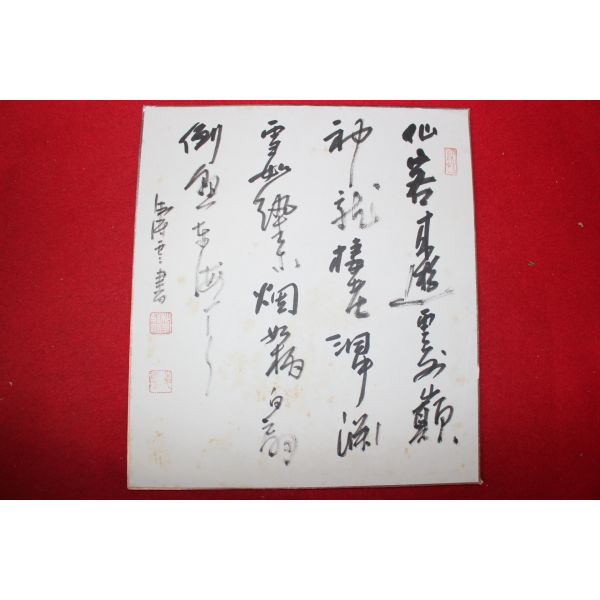 仙客来遊雲外巓
神龍棲老洞中渕
雪如紈素烟如柄白扇
倒懸東海天
雲書